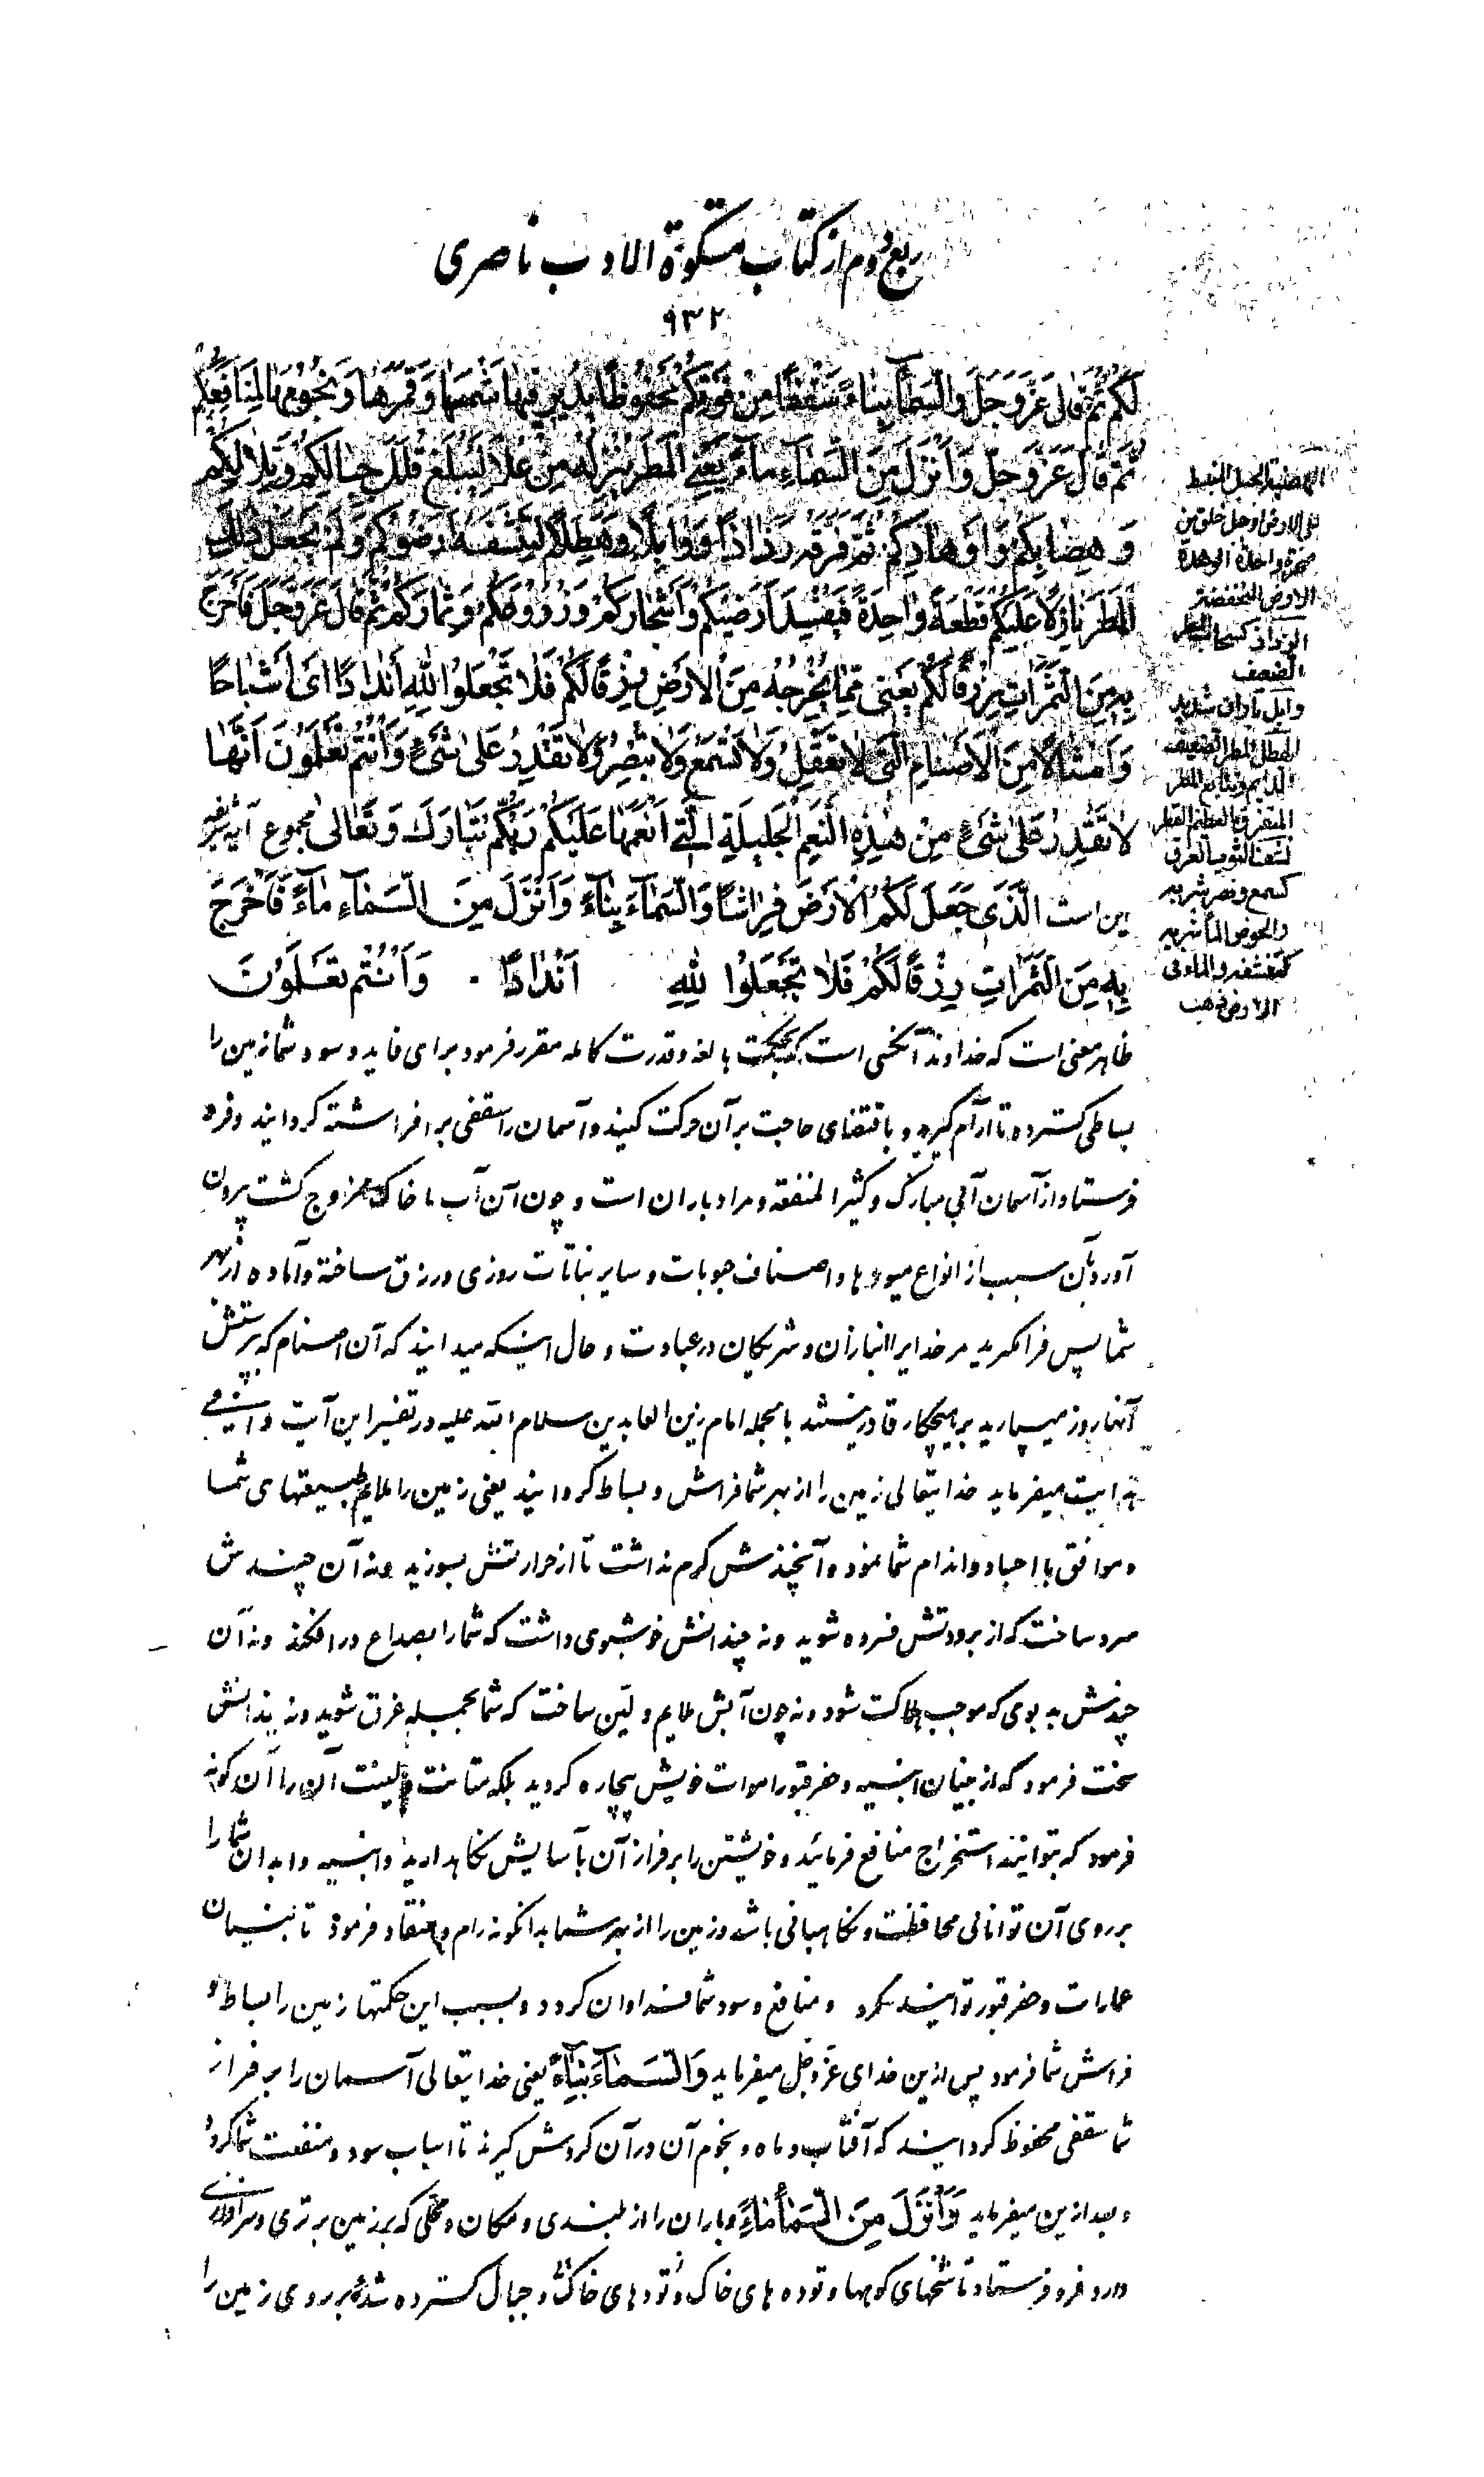 ربع دوم از کتاب مشکوة الادب ناصری
۹۳۲
لَكُمْ ثُمَّ قَالَ عَزَّ وَجَلَّ وَالسَّمَاءَ بِنَاءً سَقْفًا مِنْ فَوْقِكُمْ مَحْفُوظًا يُدِيرُ فِيهَا شَمْسَهَا وَقَمَرَهَا وَنُجُومَهَا لِمَنَافِعِكُمْ
ثُمَّ قَالَ عَزَّ وَجَلَّ وَأَنْزَلَ مِنَ السَّمَاءِ مَاءً يَعْنِي الْمَطَرَ يُنْزِلُهُ مِنْ عُلًا لِيَبْلُغَ قُلَلَ جِبَالِكُمْ وَتِلَالِكُمْ
وَهِضَابِكُمْ وَأَوْهَادِكُمْ ثُمَّ فَرَّقَهُ رَذَاذًا وَوَابِلًا وَهَطْلًا لِتَنْشَفَهُ أَرَضُوكُمْ وَلَمْ يَجْعَلْ ذٰلِكَ
الْمَطَرَ نَازِلًا عَلَيْكُمْ قِطْعَةً وَاحِدَةً فَيُفْسِدَ أَرَضِيكُمْ وَأَشْجَارَكُمْ وَزُرُوعَكُمْ وَثِمَارَكُمْ ثُمَّ قَالَ عَزَّ وَجَلَّ فَأَخْرَجَ
بِهِ مِنَ الثَّمَرَاتِ رِزْقًا لَكُمْ يَعْنِي مِمَّا يُخْرِجُهُ مِنَ الْأَرْضِ رِزْقًا لَكُمْ فَلَا تَجْعَلُوا لِلّٰهِ أَنْدَادًا أَيْ أَشْبَاهًا
وَأَمْثَالًا مِنَ الْأَصْنَامِ الَّتِي لَا تَعْقِلُ وَلَا تَسْمَعُ وَلَا تُبْصِرُ وَلَا تَقْدِرُ عَلَى شَيْءٍ وَأَنْتُمْ تَعْلَمُونَ أَنَّهَا
لَا تَقْدِرُ عَلَى شَيْءٍ مِنْ هٰذِهِ النِّعَمِ الْجَلِيلَةِ الَّتِي أَنْعَمَهَا عَلَيْكُمْ رَبُّكُمْ تَبَارَكَ وَتَعَالَى مجموع آیه شریفه
این است الَّذِي جَعَلَ لَكُمُ الْأَرْضَ فِرَاشًا وَالسَّمَاءَ بِنَاءً وَأَنْزَلَ مِنَ السَّمَاءِ مَاءً فَأَخْرَجَ
بِهِ مِنَ الثَّمَرَاتِ رِزْقًا لَكُمْ فَلَا تَجْعَلُوا لِلّٰهِ أَنْدَادًا . وَأَنْتُمْ تَعْلَمُونَ
ظاهر معنی است که خداوند آنکسی است که بحکمت بالغه و قدرت کامله مقرر فرمود برای فایده و سود شما زمین را
بساطی گسترده تا آرام گیرید و باقتضای حاجت بر آن حرکت کنید و آسمان را سقفی بر افراشته گردانید و فرو
فرستاد از آسمان آبی مبارک و کثیر المنفعه و مراد باران است و چون آن آب با خاک ممزوج گشت بیرون
آورد بآن سبب از انواع میوه‌ها و اصناف حبوبات و سایر نباتات روزی و رزق ساخته و آماده از بهر
شما پس فرا مگیرید مر خدایرا انبازان و شریکان در عبادت و حال اینکه میدانید که آن اصنام که بپرستش
آنها روز میسپارید بر هیچکار قادر نیستند بالجمله امام زین العابدین سلام الله علیه در تفسیر این آیت
هدایت میفرماید خدایتعالی زمین را از بهر شما فراش و بساط گردانید یعنی زمین را ملایم طبیعتهای شما
و موافق با اجساد و اندام شما نمود و آنچندش گرم نداشت تا از حرارتش بسوزید و نه آن چندش
سرد ساخت که از برودتش فسرده شوید و نه چندانش خوشبوی داشت که شما را بصداع در افکند و نه آن
چندش بد بوی که موجب هلاکت شود و نه چون آبش ملایم و لین ساخت که شما بجمله غرق شوید و نه بدانش
سخت فرمود که از بنیان ابنیه و حفر قبور اموات خویش بیچاره گردید بلکه متانت و لینت آن را آن گونه
فرمود که بتوانند استخراج منافع فرمائید و خویشتن را بر فراز آن بآسایش نگاهدارید و ابنیه و ابدان شما را
بر روی آن توانائی محافظت و نگاهبانی باشد و زمین را از بهر شما بدانگونه رام و منقاد فرمود تا بنیان
عمارات و حفر قبور توانید کرد و منافع و سود شما فراوان گردد و بسبب این حکمتها زمین را بساط و
فراش شما فرمود پس ازین خدای عزّ و جلّ میفرماید وَالسَّمَاءَ بِنَاءً یعنی خدایتعالی آسمان را بر فراز
شما سقفی محفوظ گردانید که آفتاب و ماه و نجوم آن در آن گردش گیرند تا اسباب سود و منفعت شما گردد
و بعد ازین میفرماید وَأَنْزَلَ مِنَ السَّمَاءِ مَاءً و باران را از بلندی و مکان و محلی که بر زمین برتری و سرافرازی
دارد فرو فرستاد تا شخهای کوهها و توده های خاک و توده‌های خاک و جبال گسترده شده بر روی زمین را
الهضبة الجبل المنبسط
على الارض او جبل خلق من
صخرة واحدة الوهدة
الارض المنخفضة
الرذاذ کسحاب المطر
الضعیف
وابل باران شدید
الهطل المطر الضعیف
الدائم و تتابع المطر
المتفرق العظیم القطر
نشف الثوب العرق
کسمع و نصر شربه
والحوض الماء شربه
کتنشفه والماء فی
الارض ذهب